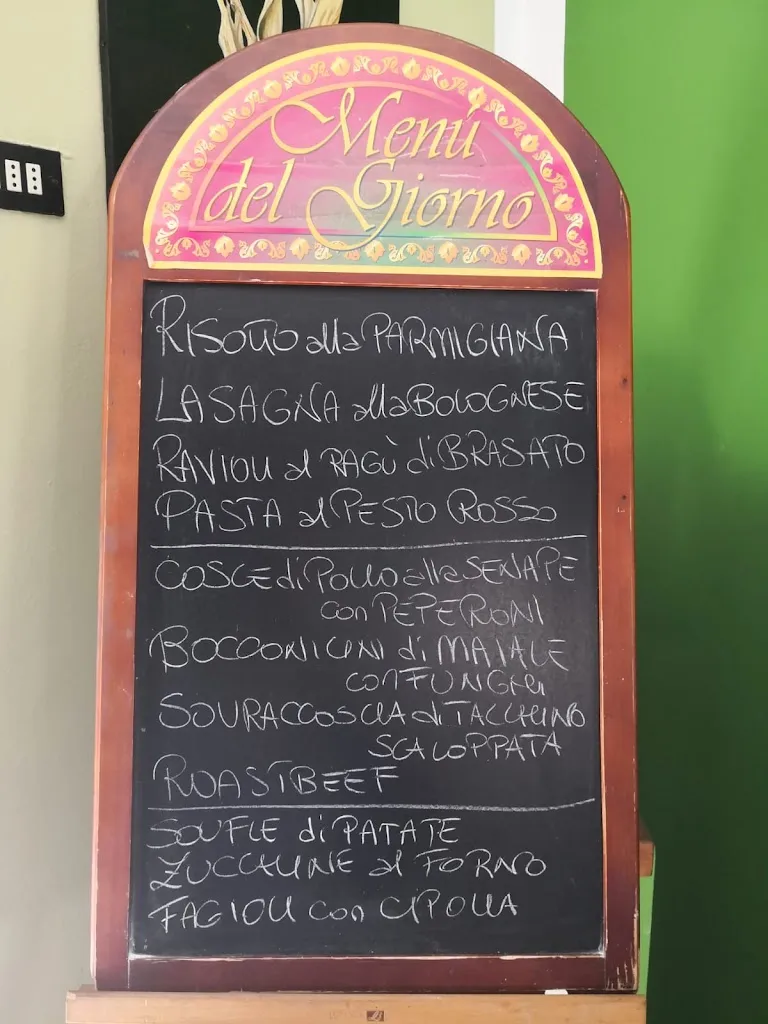 Menú
del Giorno
RISOTTO alla PARMIGIANA
LASAGNA alla BOLOGNESE
RAVIOLI al RAGÙ di BRASATO
PASTA al PESTO ROSSO
COSCE di POLLO alla SENAPE
con PEPERONI
BOCCONICINI di MAIALE
con FUNGHI
SOURACCOSCIA di TACCHINO
SCALOPPATA
ROASTBEEF
SOUFLE di PATATE
ZUCCHINE al FORNO
FAGIOLI con CIPOLLA